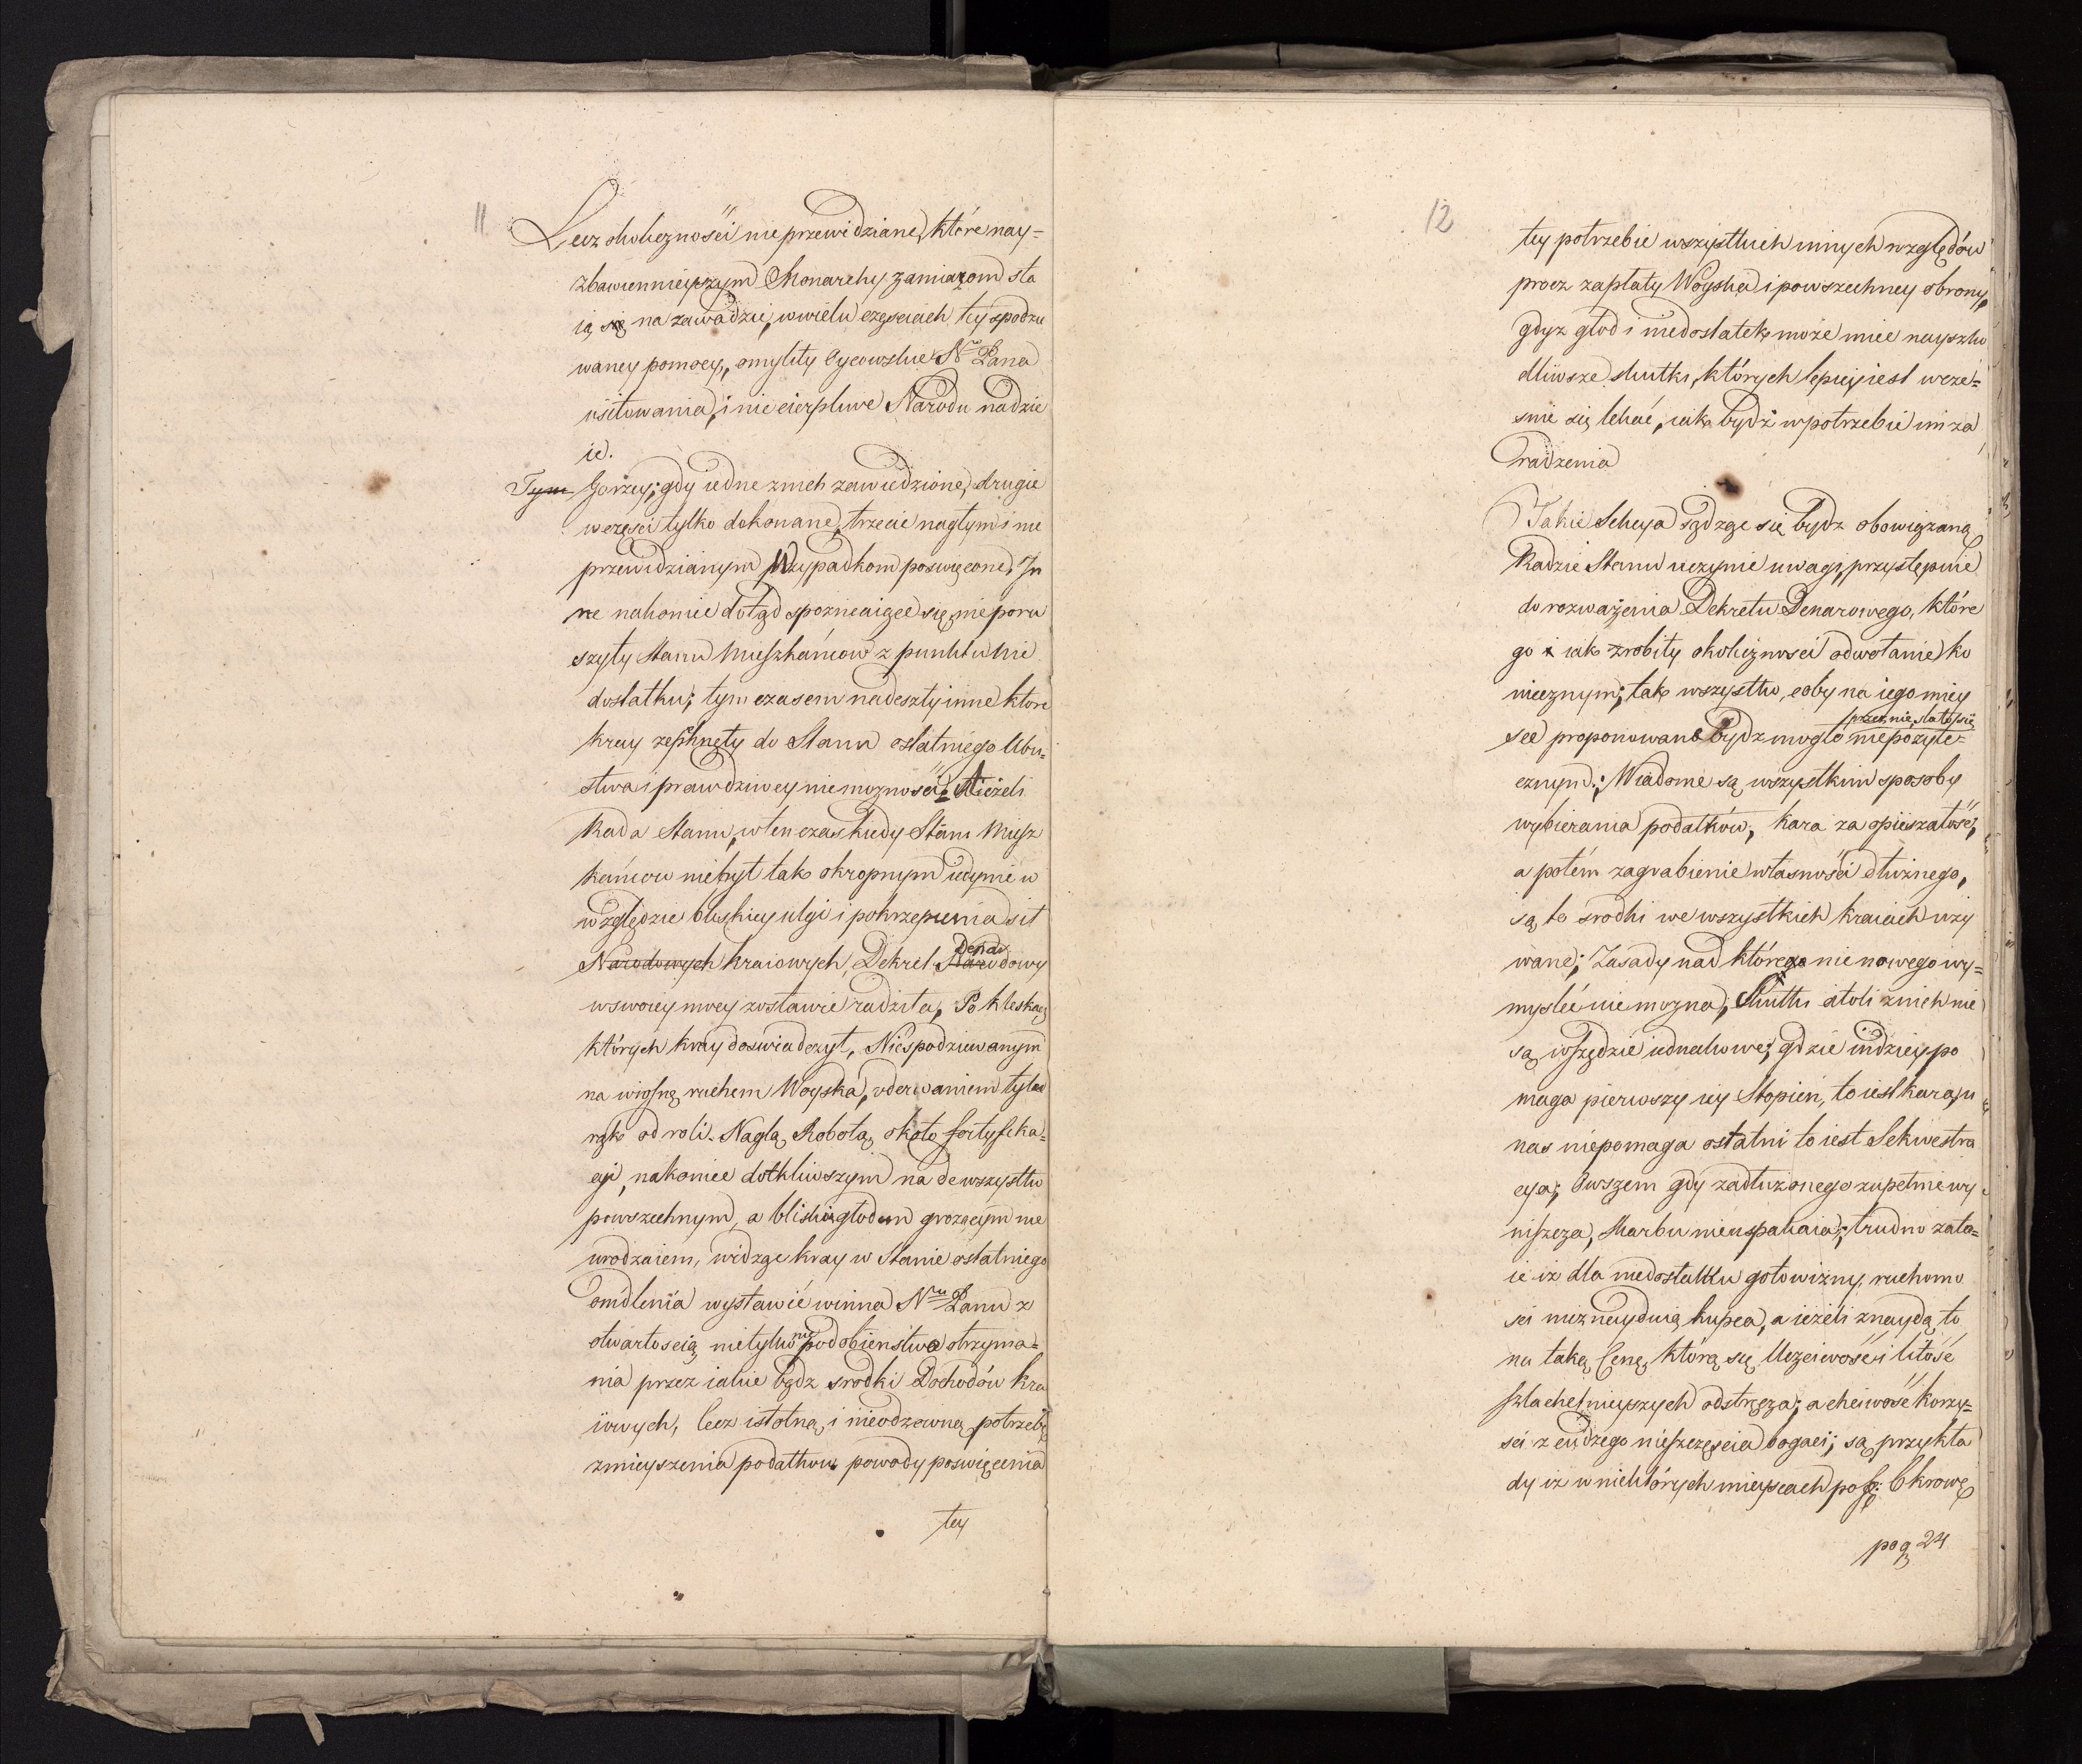 11
Lecz okolicznosci nieprzewidziane, które nay=
zbawiennieyszym Monarchy zamiarom sta
ią się na zawadzie, w wielu częsciach tey spodzie
waney pomocy, omyliły Oycowskie N° Pana
usiłowania, i nie cierpliwe Narodu nadzie
ie.
Tym Gorzey; gdy iedne z nich zawiedzione, drugie
w częsci tylko dokonane, trzecie nagłym i nie
przewidzianym Wypadkom poswięcone, In
ne nakoniec dotąd spozniaiące się, nie poru
szyły Stanu Mieszkańcow z punktu nie
dostatku; tym czasem nadeszły inne ktore
kray zephnęły do Stanu ostatniego Ubu=
stwa i prawdziwey niemoznosci; Jeżeli
Rada Stanu, w ten czas kiedy Stan Miesz
kańcow niebył tak okropnym iedynie w
względzie bliskiey ulgi i pokrzepienia sił
Narodowych kraiowych, Dekret Narodowy
Denar
w swoiey mocy zostawic radziła, Po klęskach
których kray doswiadczył, Niespodziewanym
na wiosnę ruchem Woyska, oderwaniem tylu
rąk od roli. Nagłą Robotą około fortyfika=
cyi, nakoniec dotkliwszym nadewszystko
powszechnym, a bliskim głodem grozącym nie
urodzaiem, widząc kray w Stanie ostatniego
omdlenia wystawić winna N.mu Panu z
otwartoscią nietylko nie podobienstwo otrzyma=
nia przez iakie bądz srodki Dochodów kra
iowych, lecz istotną i nieodzowną potrzebę
zmieyszenia podatkow powody poswięcenia
tey
12
tey potrzebie wszystkich innych względów
procz zapłaty Woyska i powszechney obrony,
gdyz głod i niedostatek może miec nayszko
dliwsze skutki, których lepiey iest wcze=
snie się lękać, iak bydź w potrzebie im za
radzenia
Takie Sekcya sądząc się bydz obowiązaną
Radzie Stanu uczynic uwagi, przystępuie
do rozważenia Dekretu Denarowego, które
go iak zrobiły okolicznosci odwołanie ko
niecznym; tak wszystko, coby na iego miey
sce proponowane bydz mogło niepożyte=
przez nie stało się
cznym; Wiadome są wszystkim sposoby
wybierania podatków, kara za opieszałość,
a potém zagrabienie własności dłużnego,
są to srodki we wszystkich kraiach uży
wane; Zasady nad które nic nowego wy=
mysleć nie mozna; Skutki atoli z nich nie
są wszędzie iednakowe; gdzie indziey po
maga pierwszy iey Stopień, to iest kara, u
nas niepomaga ostatni to iest Sekwestra
cya; Owszem gdy zadłużonego zupełnie wy
niszcza, Skarbu nieuspakaia; trudno zata=
ic iż dla niedostatku gotowizny, ruchomo
sci nieznayduią kupca, a ieżeli znaydą to
na taką Cenę, którą się Uczciwość i litość
szlachetnieyszych odstręcza; a chciwość korzy=
sci z cudzego nieszczęscia bogaci; są przykła
dy iz w niektórych mieyscach po f: 6 krowę
po 24